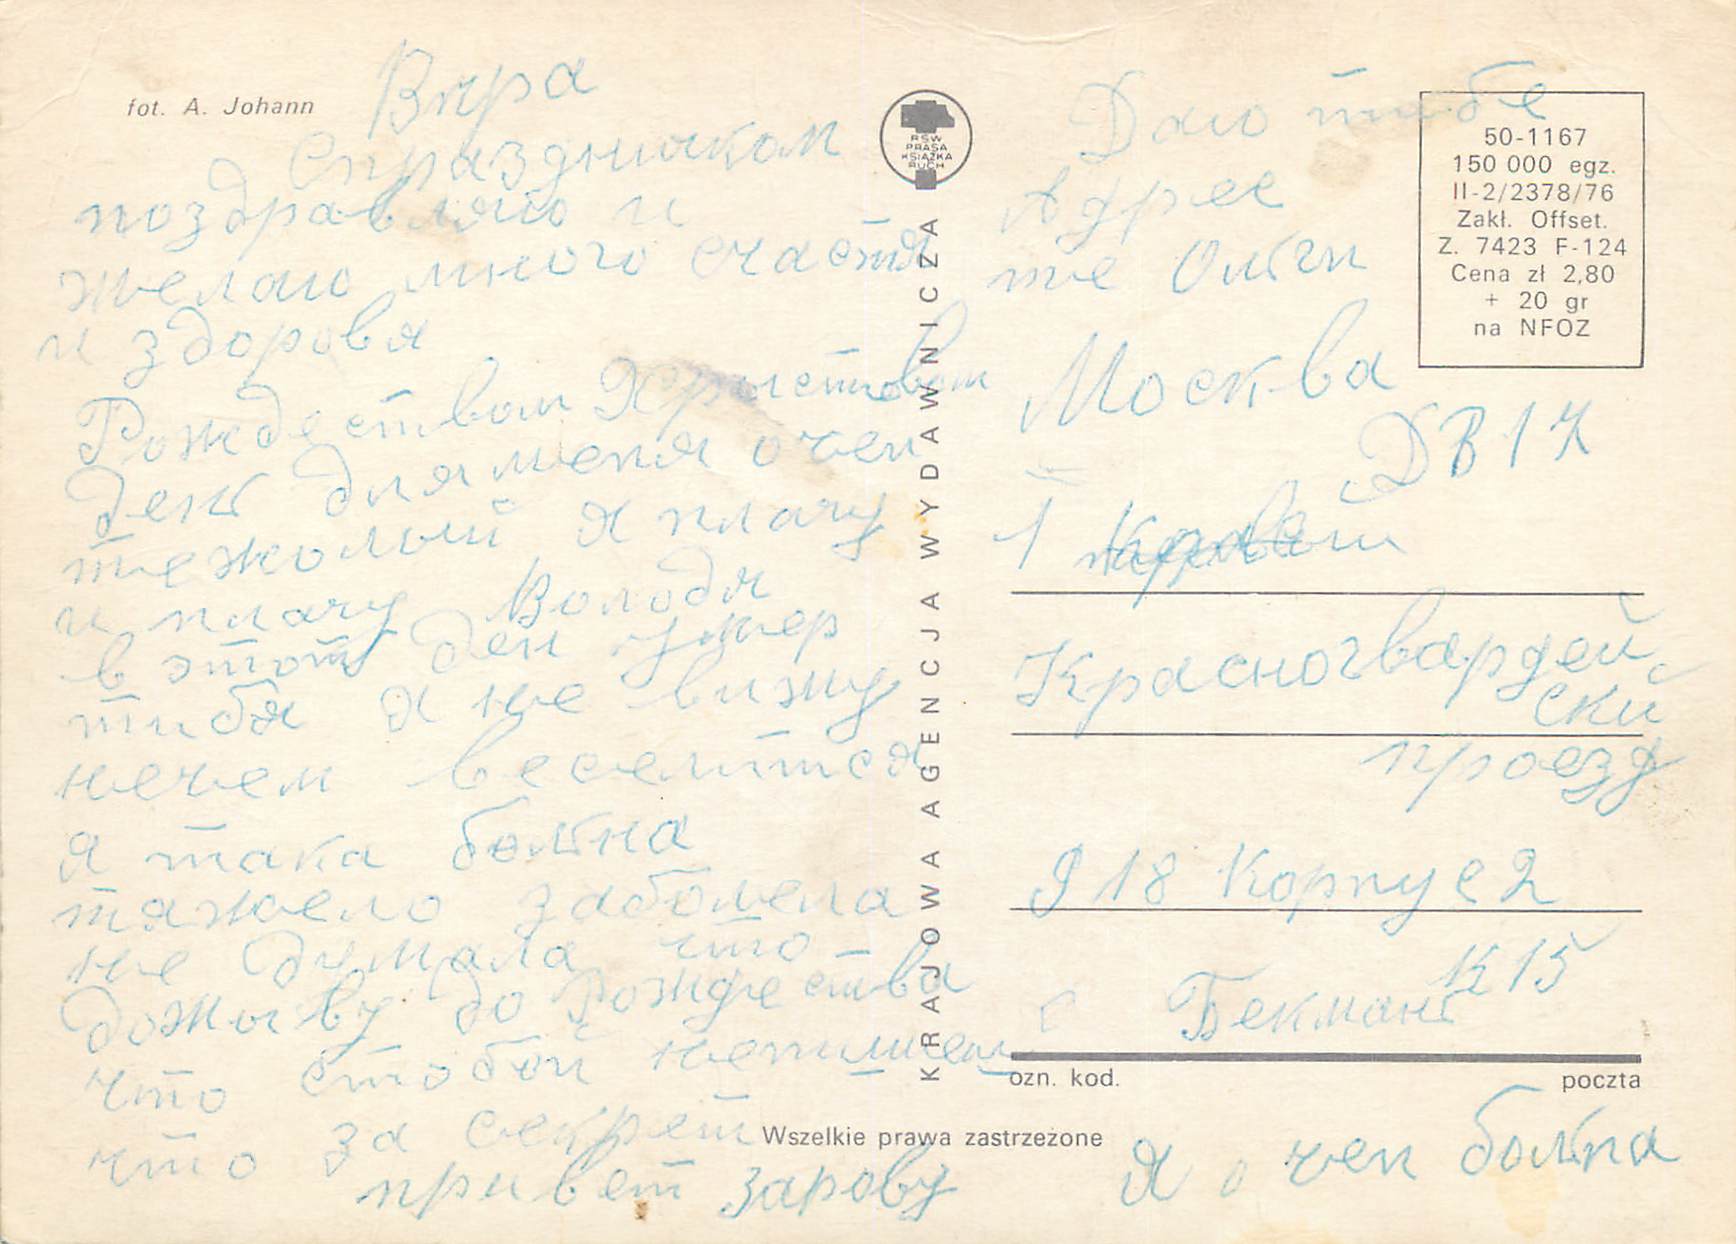 fot. A. Johann
Вира
С праздником
поздравляю и
желаю много счастя
и здоровя
Рождеством Христовом
Ден для меня очен
тежолый Я плачу
и плачу Володя
в этот ден умер
тибя я не вижу
нечем веселится
Я така болна
тяжело заболела
не думала что
дожыву до Рождества
что стобой непишеш
что за секрет
привет
RSW
PRASA
KSIĄŻKA
RUCH
KRAJOWA AGENCJA WYDAWNICZA
Wszelkie prawa zastrzeżone
Даю тибе
Адрес
те Ольги
Москва
ДВ 17
1
Красногвардей
ски
проезд
Д 18 Корпус 2
К 15
Бекман
ozn. kod.
poczta
Я очен болна
50-1167
150 000 egz.
II-2/2378/76
Zakł. Offset.
Z. 7423 F-124
Cena zł 2,80
+ 20 gr
na NFOZ